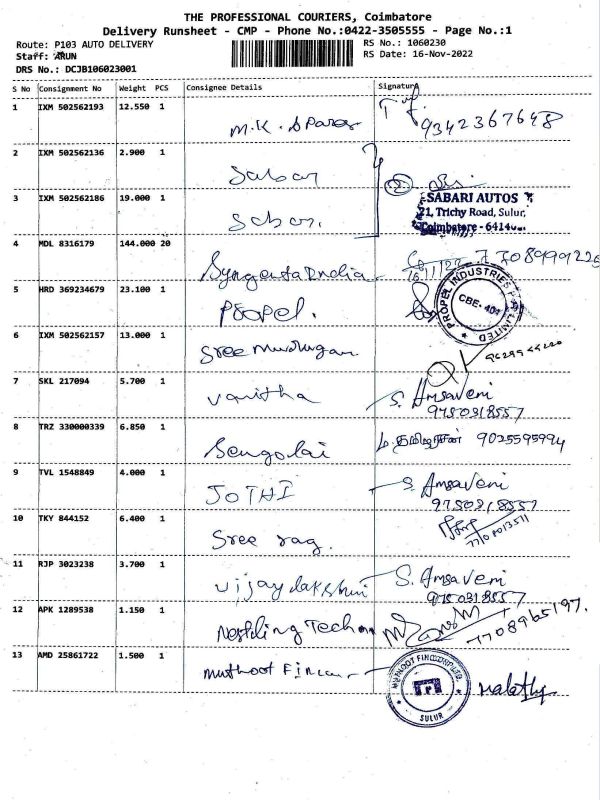 THE PROFESSIONAL COURIERS, Coimbatore
Delivery Runsheet - CMP - Phone No.:0422-3505555 - Page No.:1
Route: P103 AUTO DELIVERY
RS No.: 1060230
Staff: ARUN
RS Date: 16-Nov-2022
DRS No.: DCJB106023001
S No Consignment No Weight PCS Consignee Details Signature
1 IXM 502562193 12.550 1 M.K. Spares 9342367648
2 IXM 502562136 2.900 1 Sabari
3 IXM 502562186 19.000 1 Sabari.
SABARI AUTOS
21, Trichy Road, Sulur,
Coimbatore - 6414
4 MDL 8316179 144.000 20 Syngenta India 7708999226
16/11/22
5 HRD 369234679 23.100 1 Propel.
PROPEL INDUSTRIES LIMITED
CBE-
6 IXM 502562157 13.000 1 Sree Murugan
7 SKL 217094 5.700 1 Vanitha S. Amsaveni
9750318557
8 TRZ 330000339 6.850 1 Sengolai 9025595994
9 TVL 1548849 4.000 1 JOTHI S. Amsaveni
9750318557
10 TKY 844152 6.400 1 Sree rag.
7707013511
11 RJP 3023238 3.700 1 Vijaylakshmi S. Amsaveni
9750318557
12 APK 1289538 1.150 1 Nestling Tech 7708965197.
13 AMD 25861722 1.500 1 Muthoot Fincorp
MUTHOOT FINCORP LTD.
SULUR
Malathy